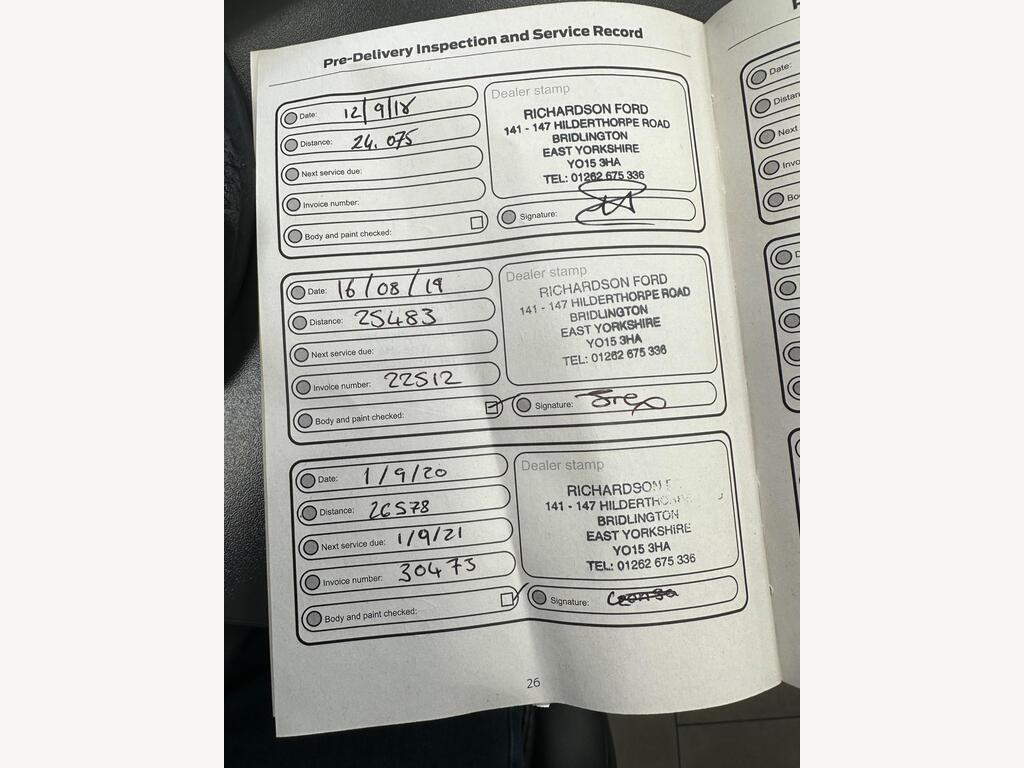 Pre-Delivery Inspection and Service Record
Date: 12/9/18
Distance: 24.075
Next service due:
Invoice number:
Body and paint checked:
Dealer stamp
RICHARDSON FORD
141 - 147 HILDERTHORPE ROAD
BRIDLINGTON
EAST YORKSHIRE
YO15 3HA
TEL: 01262 675 336
Signature:
Date: 16/08/19
Distance: 25483
Next service due:
Invoice number: 22512
Body and paint checked:
Dealer stamp
RICHARDSON FORD
141 - 147 HILDERTHORPE ROAD
BRIDLINGTON
EAST YORKSHIRE
YO15 3HA
TEL: 01262 675 336
Signature:
Date: 1/9/20
Distance: 26578
Next service due: 1/9/21
Invoice number: 30473
Body and paint checked:
Dealer stamp
RICHARDSON F
141 - 147 HILDERTHORPE
BRIDLINGTON
EAST YORKSHIRE
YO15 3HA
TEL: 01262 675 336
Signature:
26
Date:
Distan
Next
Invo
Bo